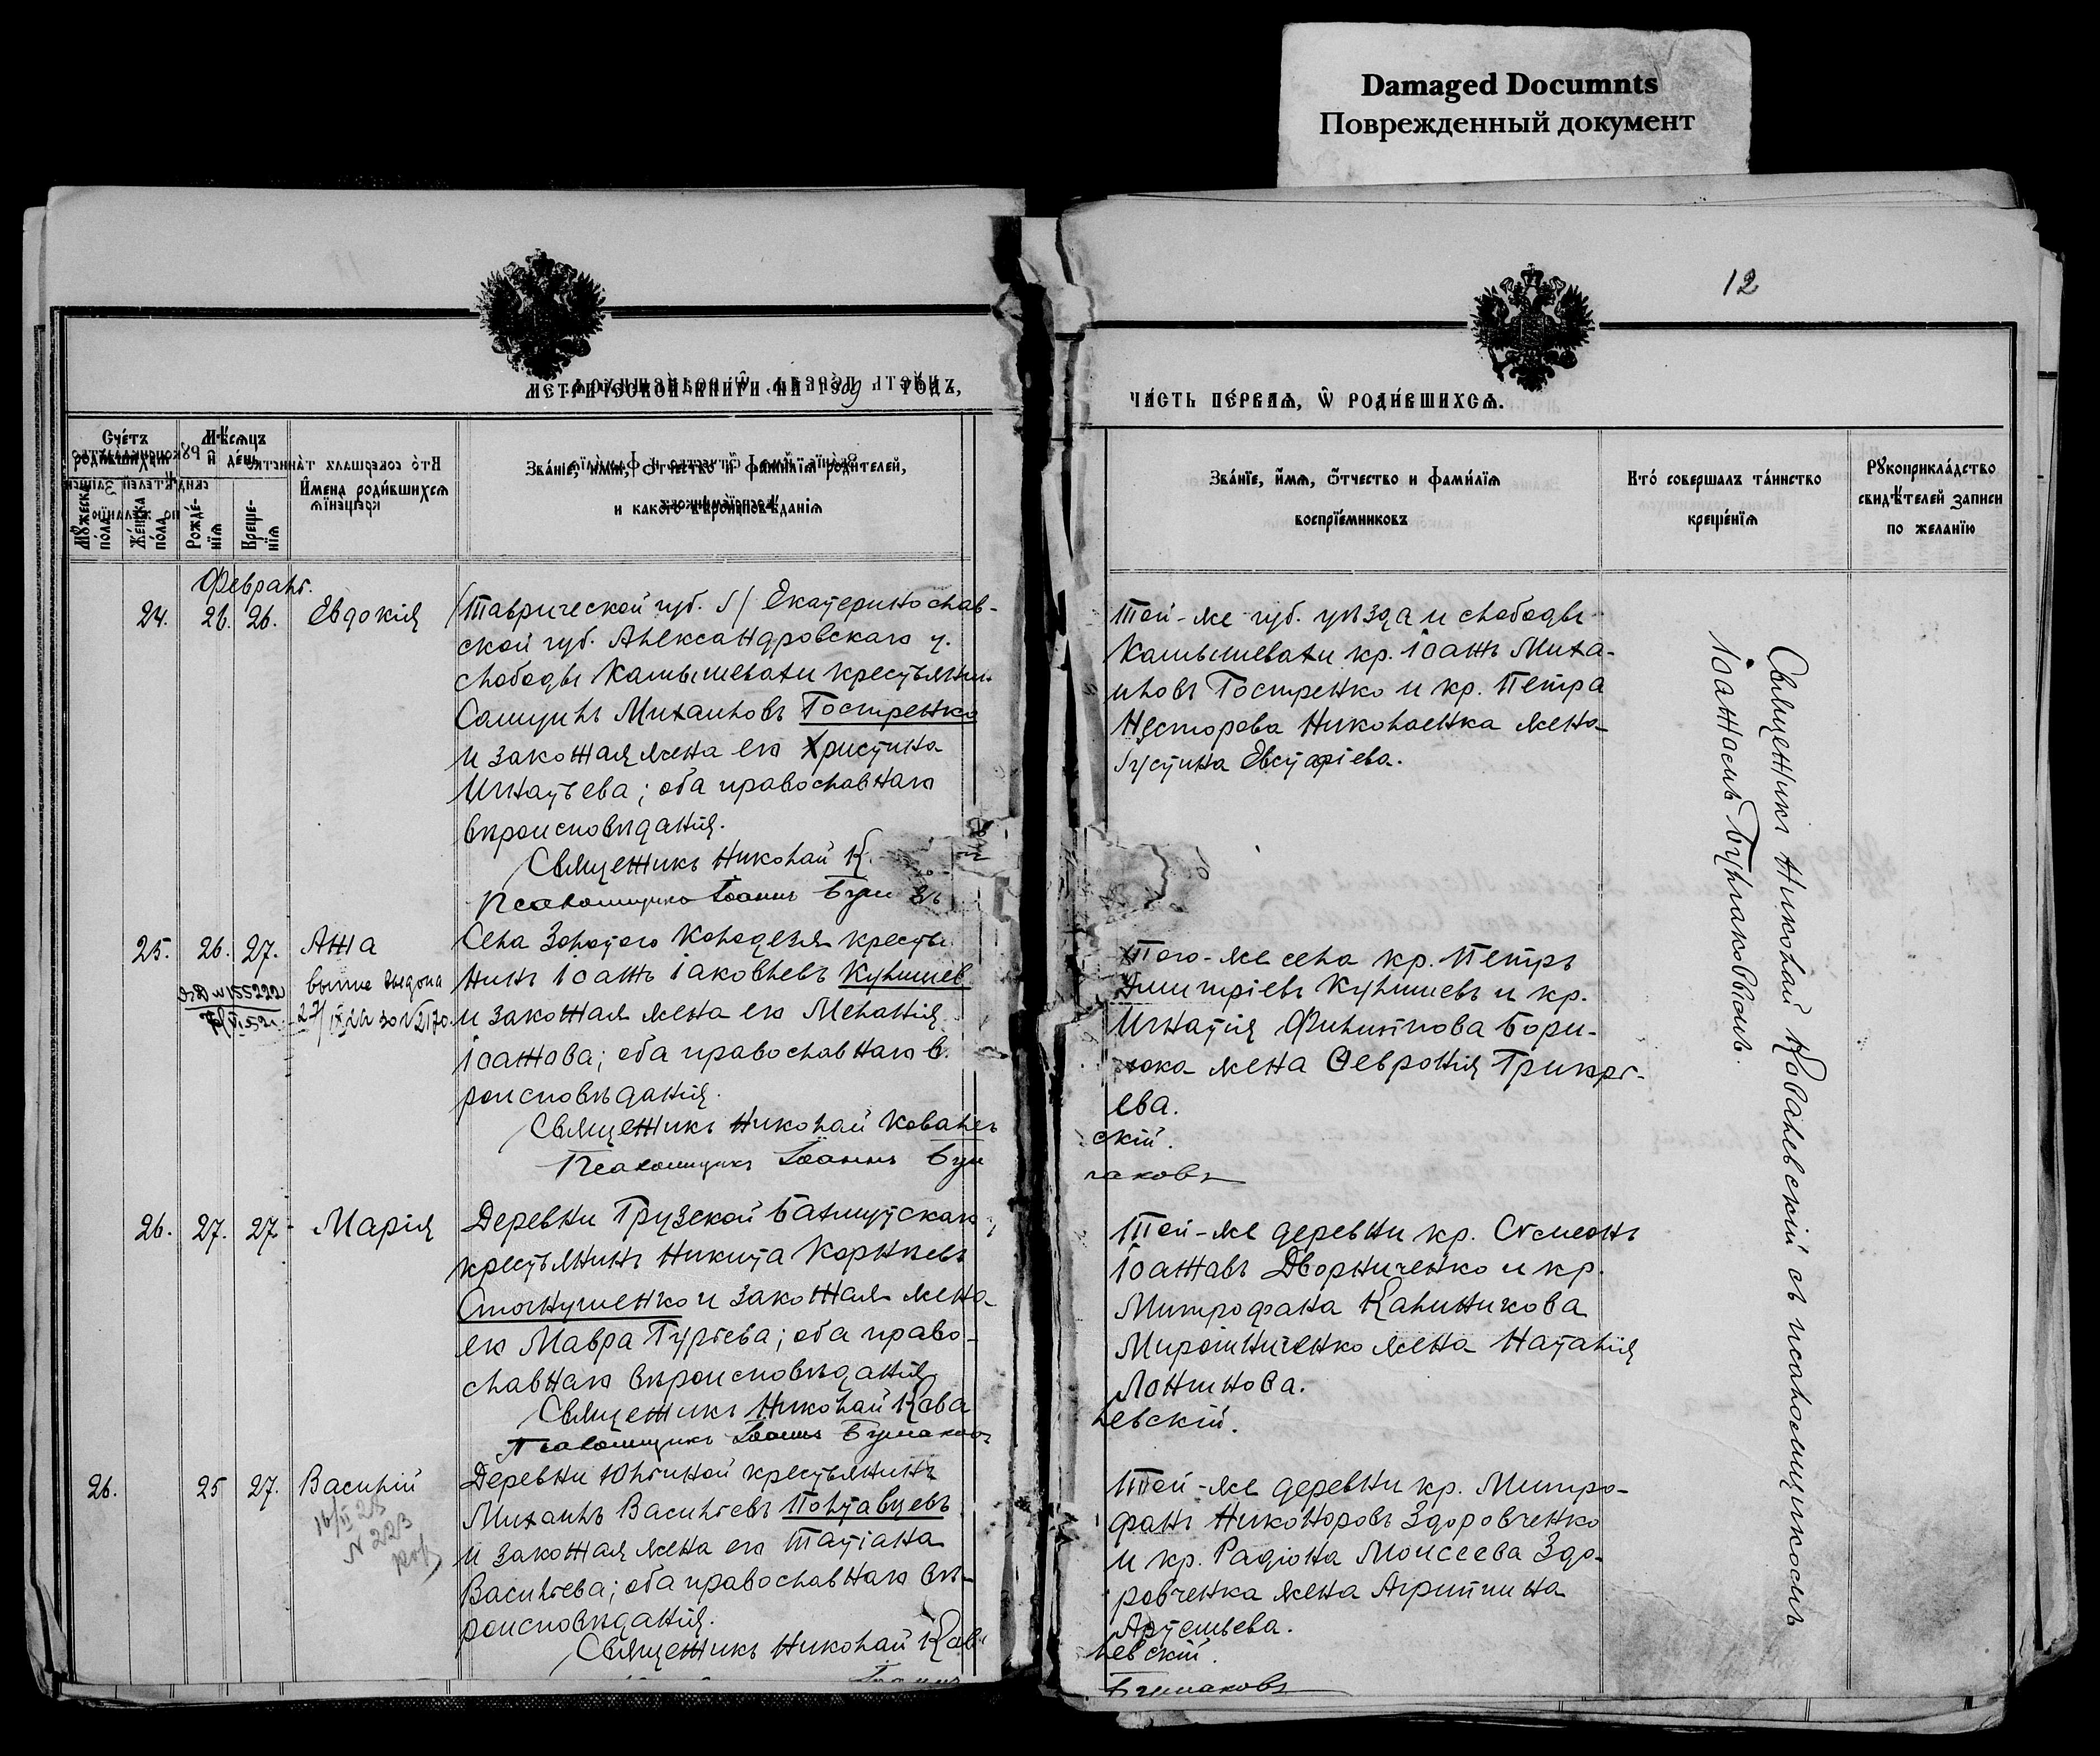 Damaged Documnts
Поврежденный документ
12
МЕТРИЧЕСКОЙ КНИГИ НА 1909 ГОДЪ,
ЧАСТЬ ПЕРВАЯ, Ѿ РОДИВШИХСЯ.
Счетъ родившихся
Мужеска пола
Женска пола
Мѣсяцъ и день
Рожденія
Крещенія
Имена родившихся
Званіе, имя, ѿтчество и фамилія родителей,
и какого вѣроисповѣданія
Званіе, имя, ѿтчество и фамилія
воспріемниковъ
Кто совершалъ таинство
крещенія
Рукоприкладство
свидѣтелей записи
по желанію
Февраль.
24. 26. 26. Евдокія
(Таврической губ. /) Екатеринослав-
ской губ. Александровскаго у.
слободы Камышевати крестьянин
Самуилъ Михаиловъ Гостренко
и законная жена его Христина
Игнатьева; оба православнаго
вѣроисповѣданія.
Священникъ Николай К
Псаломщикъ Іоаннъ Бул
Той-же губ. уѣзда и слободы
Камышевати кр. Іоаннъ Миха-
иловъ Гостренко и кр. Петра
Несторова Николаенка жена
Іустина Евстафіева.
25. 26. 27. Анна
27/IX 24 за №2170.
Села Золотого Колодезя крестья
нинъ Іоаннъ Іаковлевъ Кулишев
и законная жена его Меланія
Іоаннова; оба православнаго в.
роисповѣданія.
Священникъ Николай Ковалев
Псаломщикъ Іоаннъ Бул
Того-же села кр. Петръ
Димитріевъ Кулишевъ и кр.
Игнатія Филиппова Бори-
сюка жена Ѳевронія Григорі-
ева.
скій.
гаковъ
26. 27. 27. Марія
Деревни Грузской Бахмутскаго
крестьянинъ Никита Корніевъ
Стогнушенко и законная жена
его Мавра Гурьева; оба право-
славнаго вѣроисповѣданія
Священникъ Николай Кова
Псаломщикъ Іоаннъ Булгаковъ
Той-же деревни кр. Сѵмеонъ
Іоанновъ Дворниченко и кр.
Митрофана Калиникова
Мирошниченко жена Наталія
Логинова.
левскій.
26. 25 27. Василій
16/II 28
№ 223
Деревни Юльиной крестьянинъ
Михаилъ Васильевъ Полтавцевъ
и законная жена его Татіана
Васильева; оба православнаго вѣ-
роисповѣданія.
Священникъ Николай Кова
Іоаннъ
Той-же деревни кр. Митро-
фанъ Никоноровъ Здоровченко
и кр. Радіона Моисеева Здо-
ровченка жена Агриппина
Артемьева.
левскій.
Булгаковъ
Священникъ Николай Ковалевскій съ псаломщикомъ
Іоанномъ Булгаковымъ.